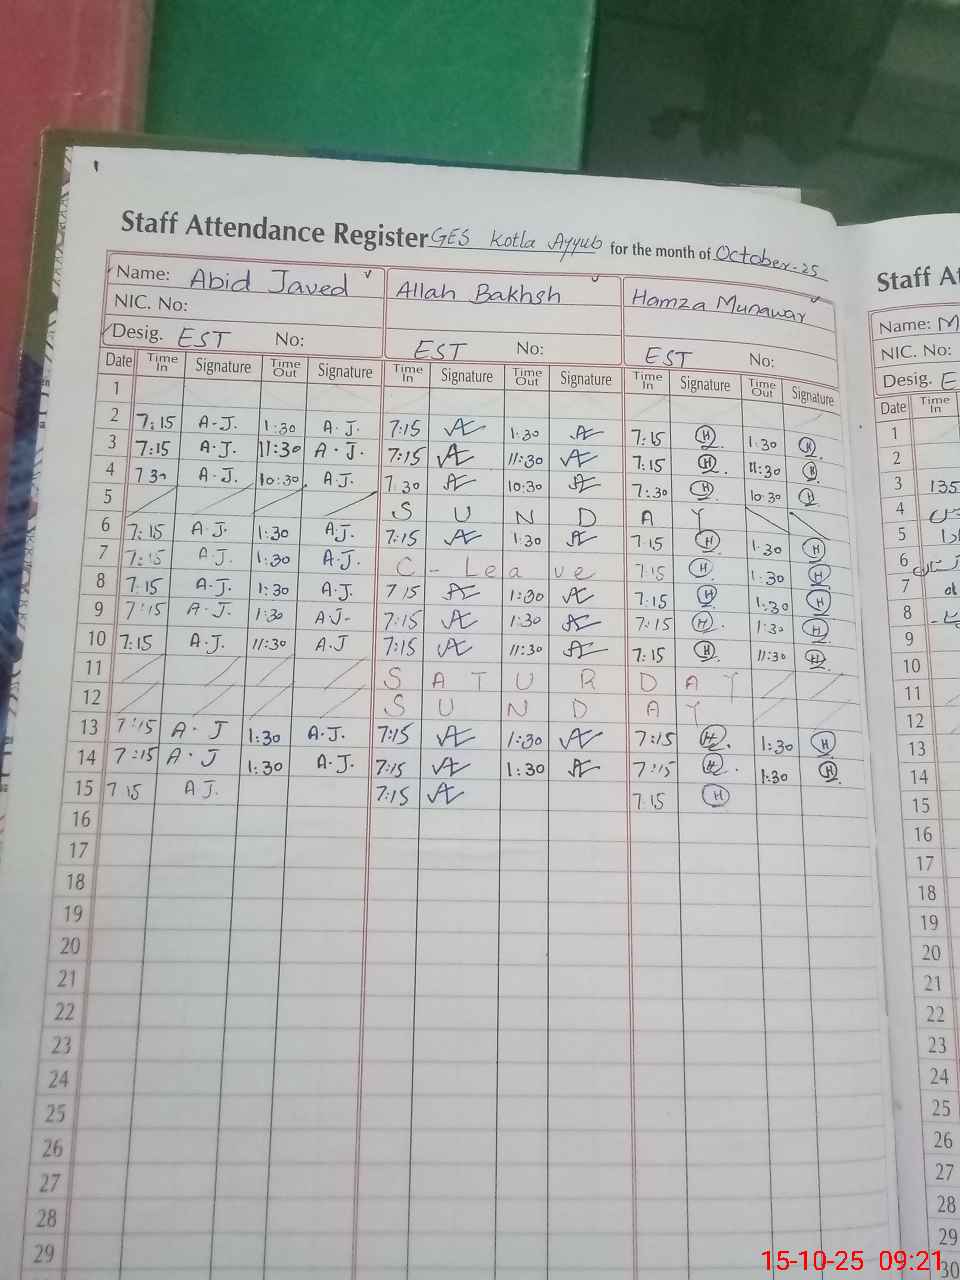 Staff Attendance Register GES Kotla Ayyub for the month of October-25
Name: Abid Javed Allah Bakhsh Hamza Munawar
NIC. No:
Desig. EST No: EST No: EST No:
Date Time In Signature Time Out Signature Time In Signature Time Out Signature Time In Signature Time Out Signature
1
2 7:15 A.J. 1:30 A.J. 7:15 1:30 7:15 H 1:30 H
3 7:15 A.J. 11:30 A.J. 7:15 11:30 7:15 H 11:30 H
4 7 30 A.J. 10:30 A.J. 7:30 10:30 7:30 H 10:30 H
5 S U N D A Y
6 7:15 A.J. 1:30 A.J. 7:15 1:30 7:15 H 1:30 H
7 7:15 A.J. 1:30 A.J. C - Leave 7:15 H 1:30 H
8 7:15 A.J. 1:30 A.J. 7 15 1:30 7:15 H 1:30 H
9 7:15 A.J. 1:30 A.J- 7:15 1:30 7:15 H 1:30 H
10 7:15 A.J. 11:30 A.J 7:15 11:30 7:15 H 11:30 H
11 S A T U R D A Y
12 S U N D A Y
13 7:15 A.J 1:30 A.J. 7:15 1:30 7:15 H 1:30 H
14 7:15 A.J 1:30 A.J. 7:15 1:30 7:15 H 1:30 H
15 7 15 A.J. 7:15 7 15 H
16
17
18
19
20
21
22
23
24
25
26
27
28
29
Staff
Name: M
NIC. No:
Desig. E
Date Time In
1
2
3 135
4
5
6
7
8
9
10
11
12
13
14
15
16
17
18
19
20
21
22
23
24
25
26
27
28
29
30
15-10-25 09:21